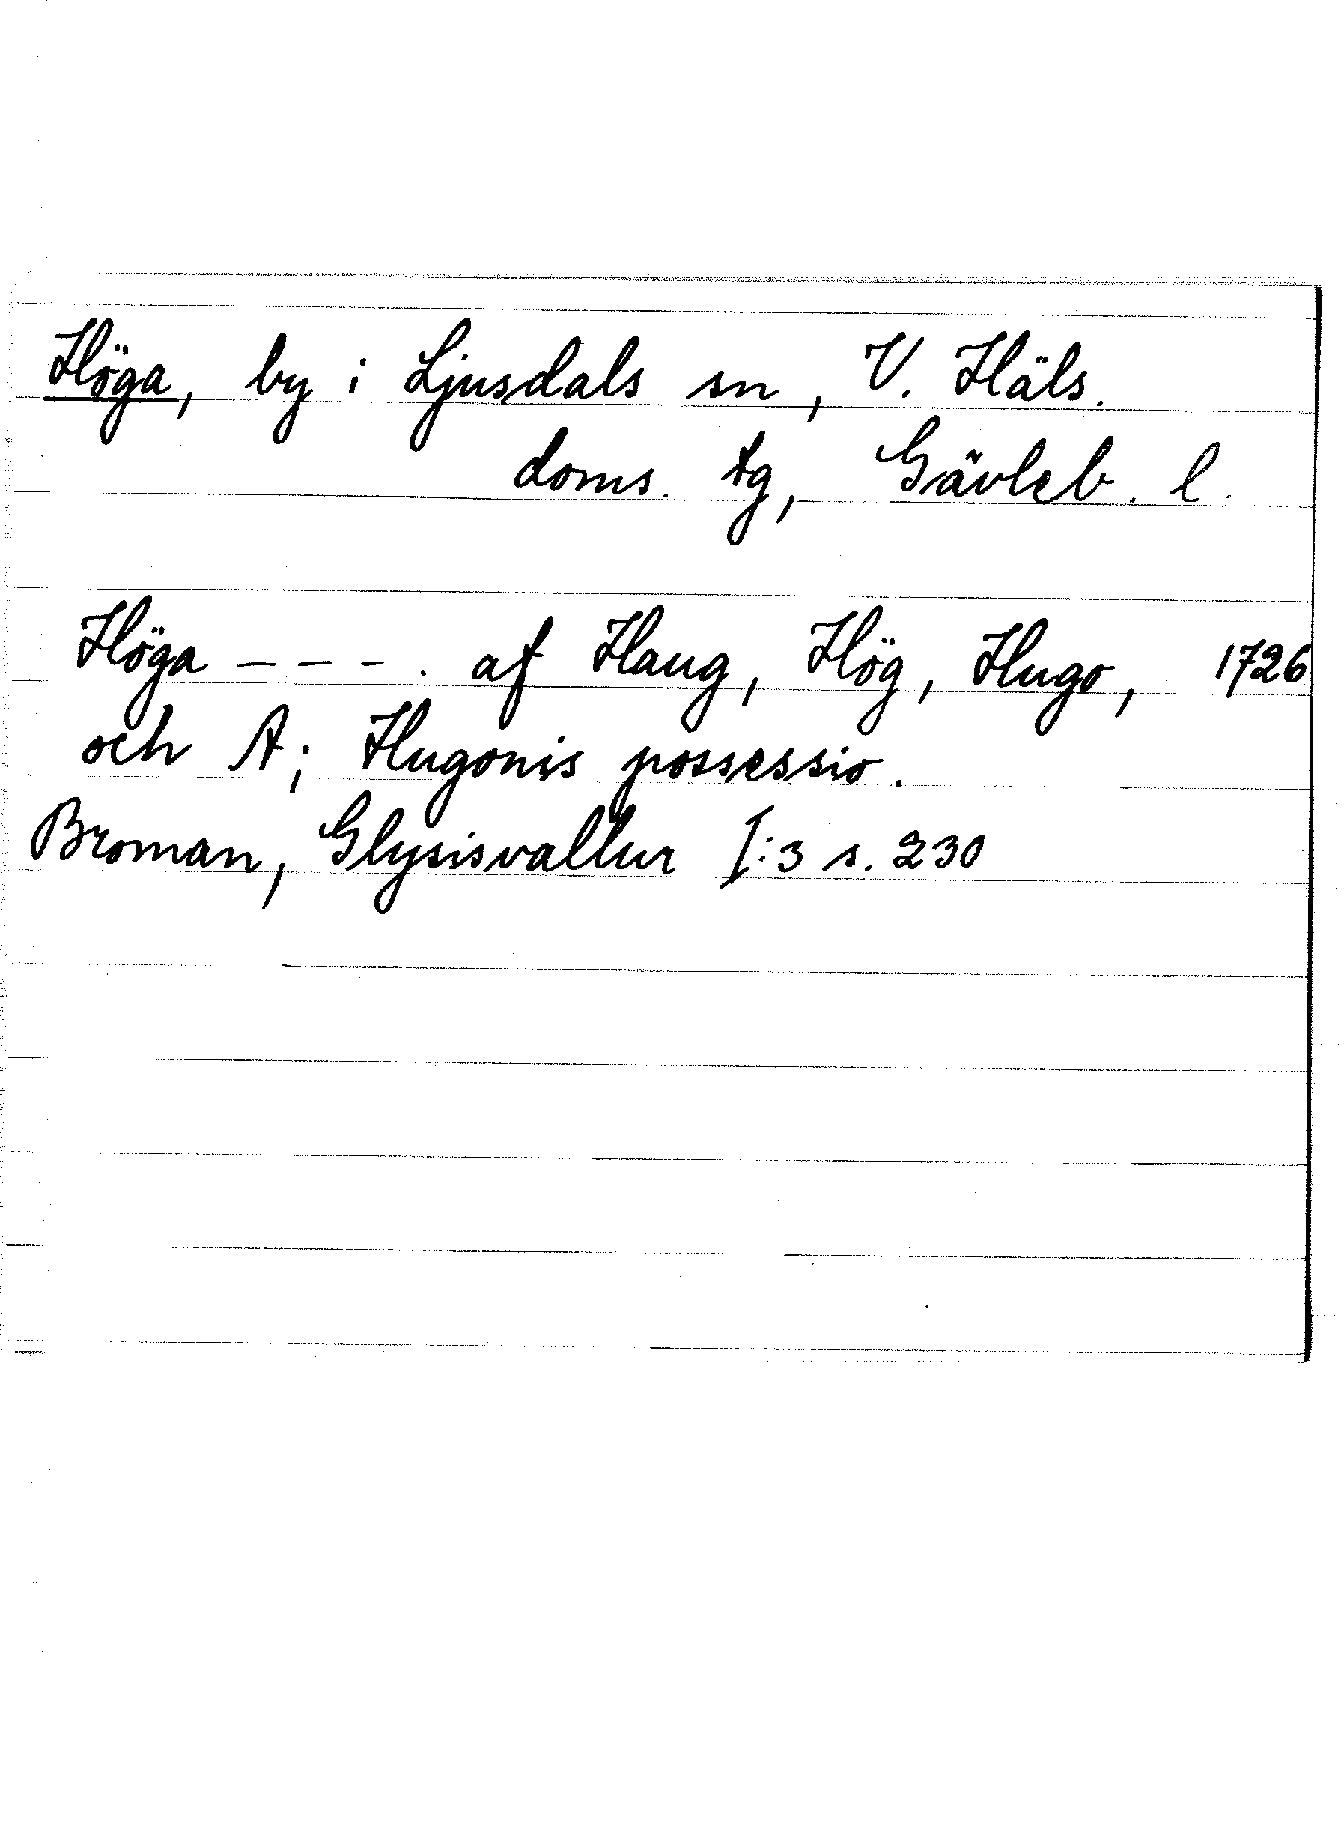 Höga, by i Ljusdals sn, V. Häls.
doms. tg, Gävleb. l.
Höga - - - . af Haug, Hög, Hugo, 1726
och A; Hugonis possessio.
Broman, Glysisvallur I:3 s. 230